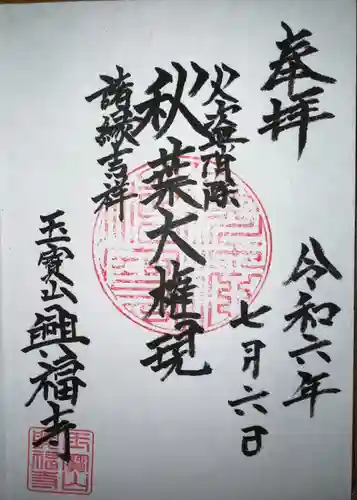 奉拝
令和六年
七月六日
火盗消除
秋葉大権現
諸縁吉祥
玉寳山
興福寺